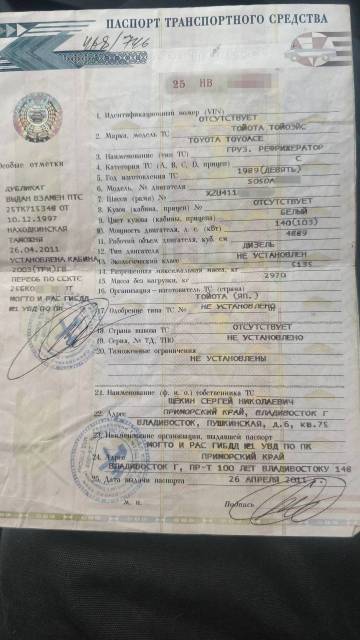 ПАСПОРТ ТРАНСПОРТНОГО СРЕДСТВА
25 НВ
1. Идентификационный номер (VIN)
ОТСУТСТВУЕТ
2. Марка, модель ТС
ТОЙОТА ТОЙОЭЙС
TOYOTA TOYOACE
3. Наименование (тип ТС)
ГРУЗ. РЕФРИЖЕРАТОР
4. Категория ТС (A, B, C, D, прицеп)
C
5. Год изготовления ТС
1989(ДЕВЯТЬ)
6. Модель, № двигателя
7. Шасси (рама) №
XZU411
8. Кузов (кабина, прицеп) №
ОТСУТСТВУЕТ
9. Цвет кузова (кабины, прицепа)
БЕЛЫЙ
10. Мощность двигателя, л. с. (кВт)
140(103)
11. Рабочий объем двигателя, куб. см
4009
12. Тип двигателя
ДИЗЕЛЬ
13. Экологический класс
НЕ УСТАНОВЛЕН
14. Разрешенная максимальная масса, кг
5135
15. Масса без нагрузки, кг
2970
16. Организация-изготовитель ТС (страна)
ТОЙОТА (ЯП.)
17. Одобрение типа ТС №
НЕ УСТАНОВЛЕНО
18. Страна вывоза ТС
ОТСУТСТВУЕТ
19. Серия, № ТД, ТПО
НЕ УСТАНОВЛЕНО
20. Таможенные ограничения
НЕ УСТАНОВЛЕНЫ
21. Наименование (ф. и. о.) собственника ТС
ЩЕКИН СЕРГЕЙ НИКОЛАЕВИЧ
22. Адрес
ПРИМОРСКИЙ КРАЙ, ВЛАДИВОСТОК Г
ВЛАДИВОСТОК, ПУШКИНСКАЯ, д.6, кв.75
23. Наименование организации, выдавшей паспорт
МОГТО И РАС ГИБДД №1 УВД ПО ПК
24. Адрес
ПРИМОРСКИЙ КРАЙ
ВЛАДИВОСТОК Г, ПР-Т 100 ЛЕТ ВЛАДИВОСТОКУ 148
25. Дата выдачи паспорта
26 АПРЕЛЯ 2011
М. П.
Подпись
Особые отметки
ДУБЛИКАТ
ВЫДАН ВЗАМЕН ПТС
25ТК715348 ОТ
10.12.1997
НАХОДКИНСКАЯ
ТАМОЖНЯ
26.04.2011
УСТАНОВЛЕНА КАБИНА
2003(ТРИ)ГВ
МОГТО И РАС ГИБДД
№1 УВД ПО ПК